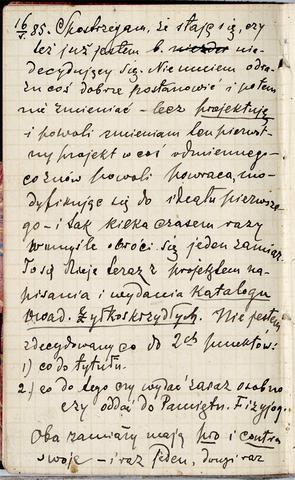 16/V. 85. Spostrzegam, że staję się, czy
też już jestem b. nie-
decydujący się. Nie umiem odra-
zu coś dobrze postanowić i potem
nie zmieniać – lecz projektuję
i powoli zmieniam ten pierwot-
ny projekt w coś odmiennego–
co znów powoli powraca, mo-
dyfikując się do ideału pierwsze-
go – i tak kilka czasem razy
w umyśle obróci się jeden zamiar.
To się dzieje teraz z projektem na-
pisania i wydania Katalogu
Owad. Żyłkoskrzydłych. Nie jestem
zdecydowany co do 2ch punktów:
1) co do tytułu.
2) co do tego czy wydać zaraz osobno
czy oddać do Pamiętn. Fizyjog.
Oba zamiary mają pro i contra
swoje – i raz jeden, drugi raz